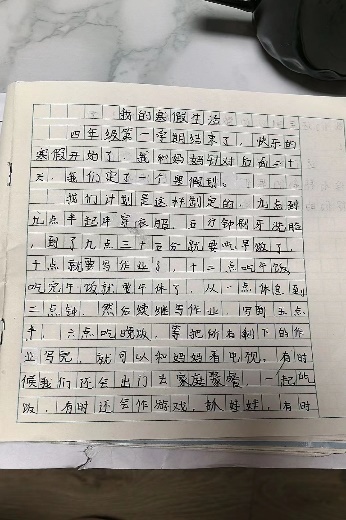 我的寒假生活
四年级第一学期结束了，快乐的
寒假开始了，我和妈妈针对的二十
天，我们定了一个寒假计。
我们计划是这样制定的，九点到
九点半起床穿衣服，五分钟刷牙洗脸
，到了九点三十五分就要吃早饭了，
十点就要写作业了，十二点吃午饭，
吃完午饭就要午休了，从一点休息到
二点钟，然后继续写作业，写到五点
半，六点吃晚饭，等把所有剩下的作
业写完，就可以和妈妈看电视，有时
候我们还会出门去家庭聚餐，一起吃
饭，有时还会作游戏，抓娃娃，有时